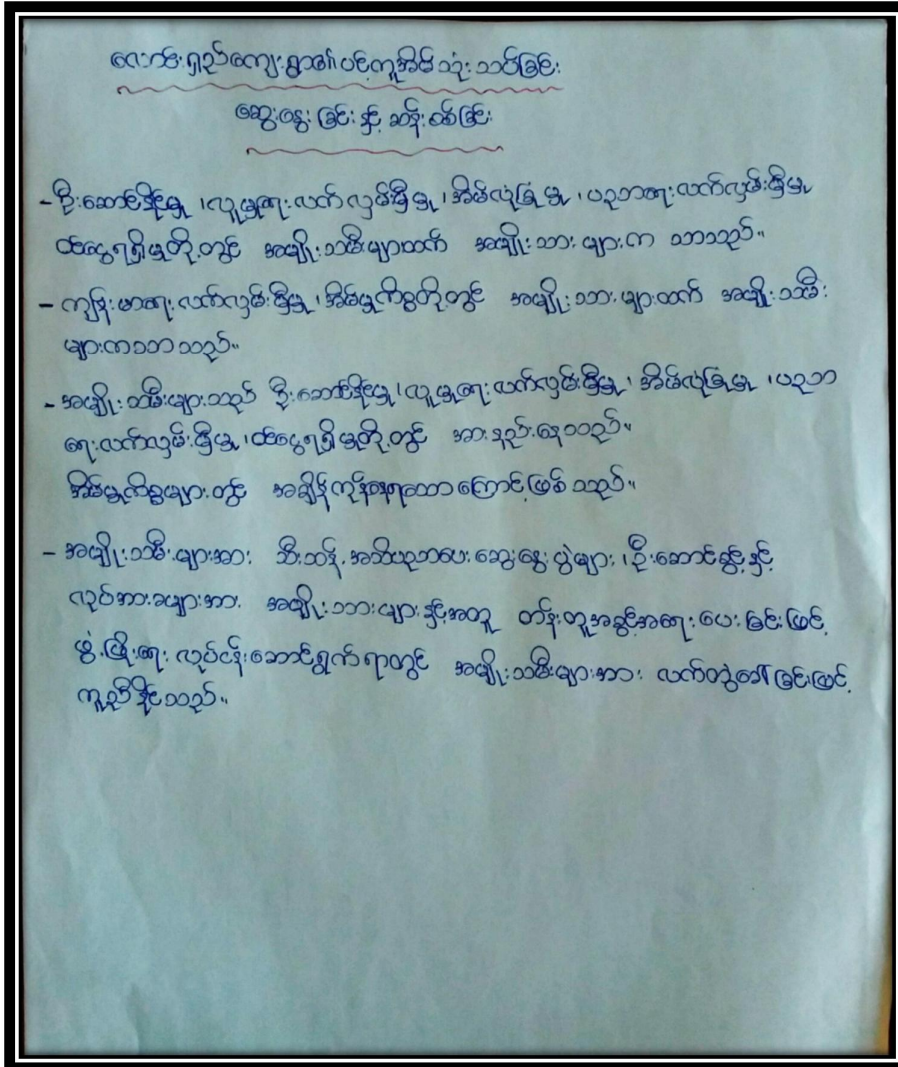 ဆွေးနွေးခြင်းနှင့် ဆန်းစစ်ခြင်း
- ဦးဆောင်နိုင်မှု ၊ လူမှုရေးလက်လှမ်းမှီမှု ၊ အိမ်လုံခြုံမှု ၊ ပညာရေးလက်လှမ်းမှီမှု
ဝင်ငွေရရှိမှုတို့တွင် အမျိုးသမီးများထက် အမျိုးသားများက သာသည်။
- ကျန်းမာရေးလက်လှမ်းမှီမှု ၊ အိမ်မှုကိစ္စတို့တွင် အမျိုးသားများထက် အမျိုးသမီး
များကသာသည်။
- အမျိုးသမီးများသည် ဦးဆောင်နိုင်မှု ၊ လူမှုရေးလက်လှမ်းမှီမှု ၊ အိမ်လုံခြုံမှု ၊ ပညာ
ရေးလက်လှမ်းမှီမှု ၊ ဝင်ငွေရရှိမှုတို့တွင် အားနည်းနေသည်။
အိမ်မှုကိစ္စများတွင် အချိန်ကုန်နေရသောကြောင့်ဖြစ်သည်။
- အမျိုးသမီးများအား သီးသန့်အသိပညာပေးဆွေးနွေးပွဲများ ၊ ဦးဆောင်ခွင့်နှင့်
လုပ်အားခများအား အမျိုးသားများနှင့်အတူ တန်းတူအခွင့်အရေးပေးခြင်းဖြင့်
ဖွံ့ဖြိုးရေးလုပ်ငန်းဆောင်ရွက်ရာတွင် အမျိုးသမီးများအား လက်တွဲခေါ်ခြင်းဖြင့်
ကူညီနိုင်သည်။